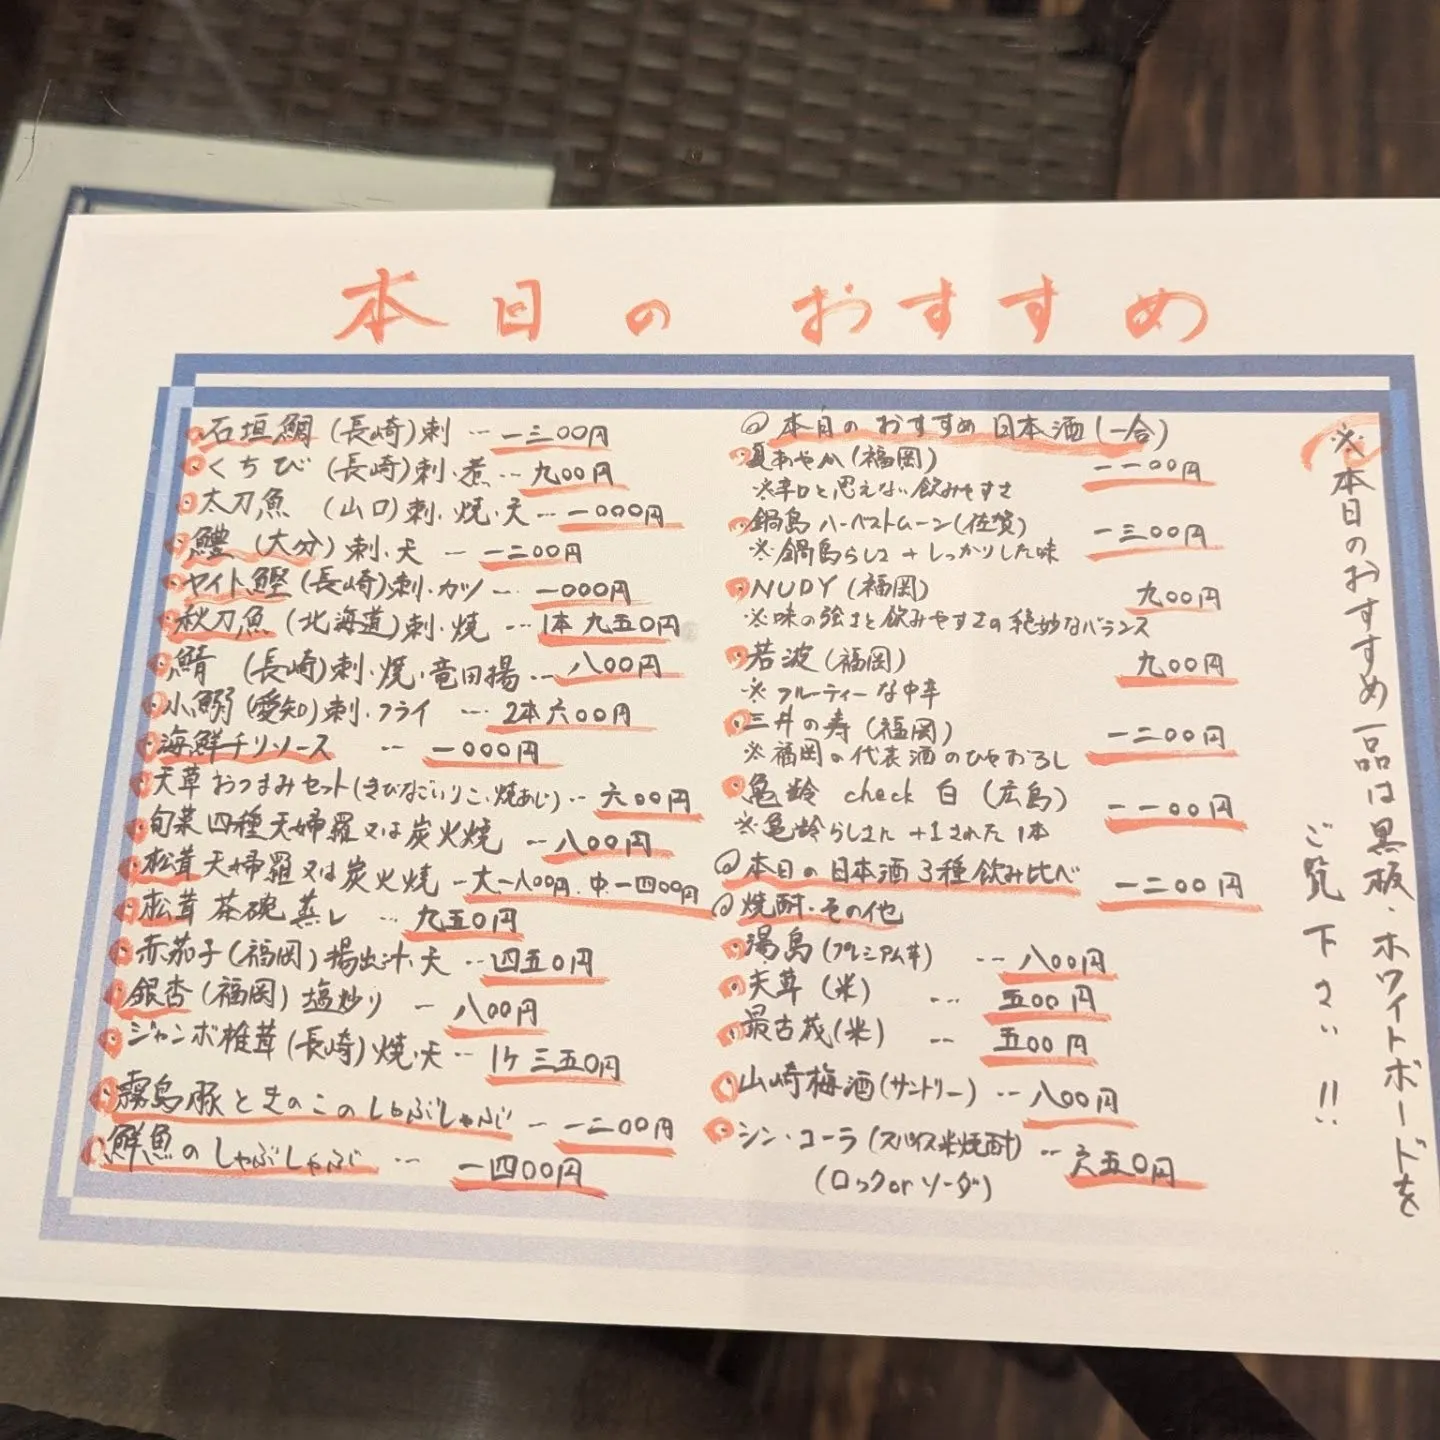 本日の おすすめ
・石垣鯛 (長崎)刺 … 一三〇〇円
・くちび (長崎)刺・煮 … 九〇〇円
・太刀魚 (山口)刺・焼・天 … 一〇〇〇円
・鱧 (大分)刺・天 … 一二〇〇円
・ヤイト鰹(長崎)刺・カツ … 一〇〇〇円
・秋刀魚 (北海道)刺・焼 … 1本 九五〇円
・鯖 (長崎)刺・焼・竜田揚 … 八〇〇円
・小鰯(愛知)刺・フライ … 2本六〇〇円
・海鮮チリソース … 一〇〇〇円
・天草おつまみセット(きびなごいりこ・焼あじ) … 六〇〇円
・旬菜四種天婦羅又は炭火焼 … 八〇〇円
・松茸天婦羅又は炭火焼 … 大一八〇〇円、中一四〇〇円
・松茸茶碗蒸し … 九五〇円
・赤茄子(福岡)揚出汁・天 … 四五〇円
・銀杏(福岡)塩炒り … 八〇〇円
・ジャンボ椎茸(長崎)焼・天 … 1ケ 三五〇円
・霧島豚ときのこのしゃぶしゃぶ … 一二〇〇円
・鮮魚のしゃぶしゃぶ … 一四〇〇円
◎本日のおすすめ日本酒(一合)
・夏あやか(福岡) 一一〇〇円
※辛口と思えない飲みやすさ
・鍋島ハーベストムーン(佐賀) 一三〇〇円
※鍋島らしさ+しっかりした味
・NUDY(福岡) 九〇〇円
※味の強さと飲みやすさの絶妙なバランス
・若波(福岡) 九〇〇円
※フルーティーな中辛
・三井の寿(福岡) 一二〇〇円
※福岡の代表酒のひやおろし
・亀齢 check 白 (広島) 一一〇〇円
※亀齢らしさに+1された1本
◎本日の日本酒3種飲み比べ 一二〇〇円
◎焼酎・その他
・湯島(プレミアム芋) … 八〇〇円
・天草(米) … 五〇〇円
・最古蔵(米) … 五〇〇円
・山崎梅酒(サントリー) … 八〇〇円
・シン・コーラ(スパイス米焼酎) … 六五〇円
(ロックorソーダ)
※本日のおすすめ一品は黒板・ホワイトボードを
ご覧下さい!!